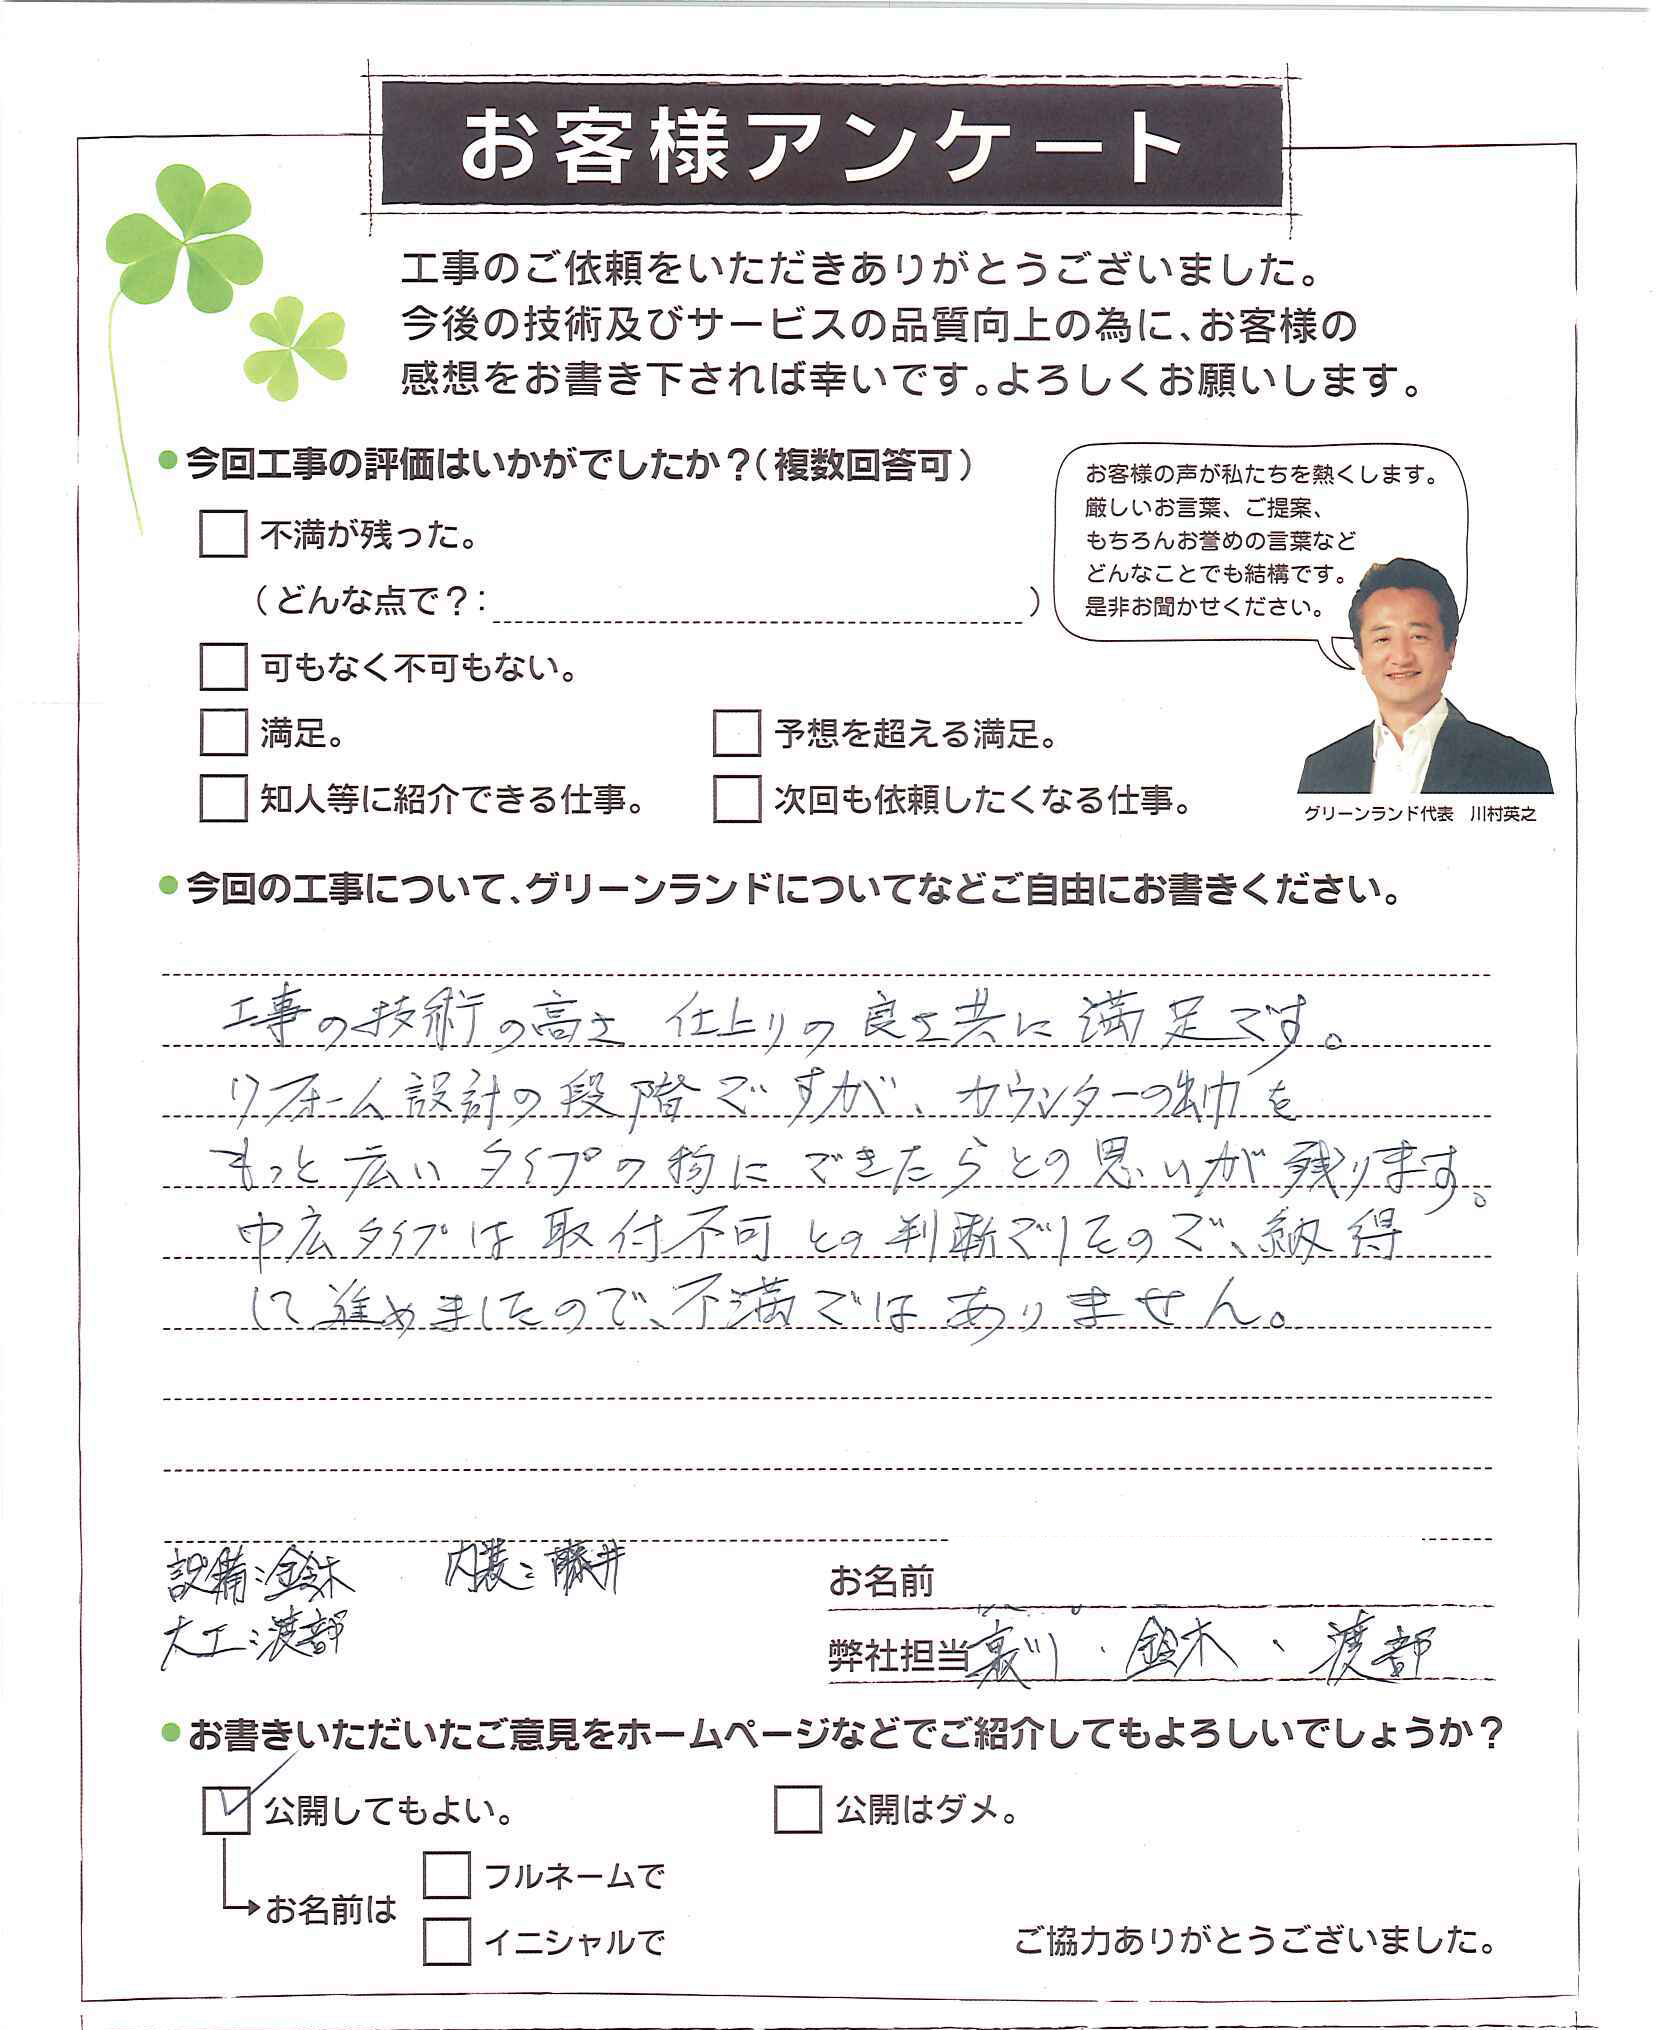 お客様アンケート
工事のご依頼をいただきありがとうございました。
今後の技術及びサービスの品質向上の為に、お客様の
感想をお書き下されば幸いです。よろしくお願いします。
今回工事の評価はいかがでしたか？（複数回答可）
不満が残った。
（どんな点で？： ）
可もなく不可もない。
満足。 予想を超える満足。
知人等に紹介できる仕事。 次回も依頼したくなる仕事。
お客様の声が私たちを熱くします。
厳しいお言葉、ご提案、
もちろんお誉めの言葉など
どんなことでも結構です。
是非お聞かせください。
グリーンランド代表 川村英之
今回の工事について、グリーンランドについてなどご自由にお書きください。
工事の技術の高さ 仕上りの良さ共に満足です。
リフォーム設計の段階ですが、カウンターの巾を
もっと広いタイプの物にできたらとの思いが残ります。
巾広タイプは取付不可との判断でしたので、納得
して進めましたので、不満ではありません。
設備：鈴木 内装：藤井
大工：渡部
お名前
弊社担当 裏川・鈴木、渡部
お書きいただいたご意見をホームページなどでご紹介してもよろしいでしょうか？
公開してもよい。 公開はダメ。
お名前は
フルネームで
イニシャルで
ご協力ありがとうございました。